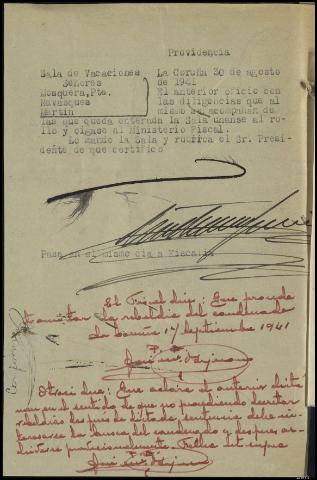 Providencia
Sala de Vacaciones
Señores
Mosquera, Pte.
Ravasques
Martin
La Coruña 30 de agosto
de 1941
El anterior oficio con
las diligencias que al
mismo se acompañan de
las que queda enterada la Sala unanse al ro-
llo y oigase al Ministerio Fiscal.
Lo mando la Sala y rubrica el Sr. Presi-
dente de que certifico
Pasa en el mismo dia a Fiscalia
El Fiscal dice: Que procede
tramitar la rebeldia del condenado
La Coruña 17 Septiembre 1941
Otrosi dice: Que aclara el anterior dicta
men en el sentido de que no procediendo decretar
rebeldias despues de dictada sentencia debe in-
teresarse la busca del condenado y despues ar-
chivarse provisionalmente. Fecha